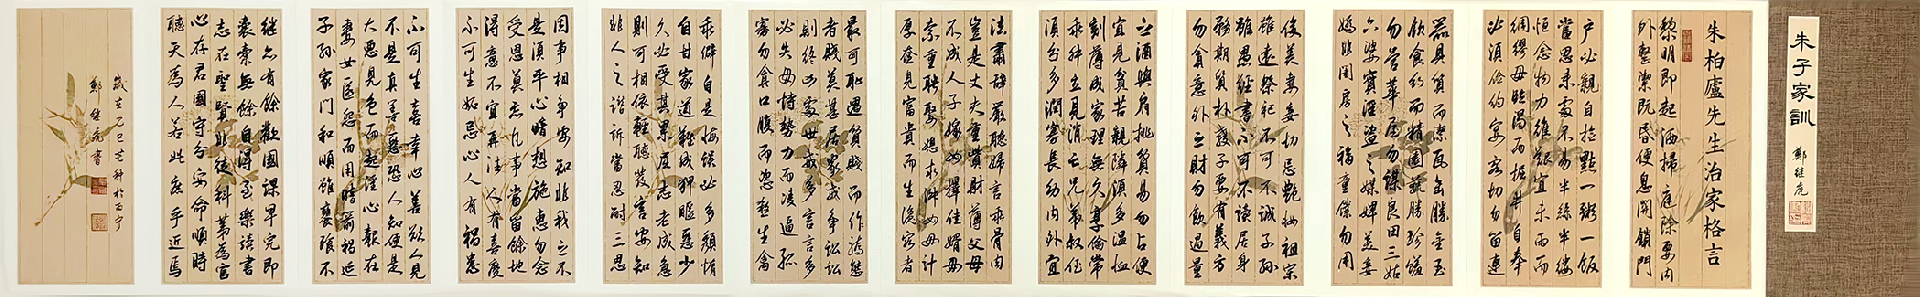 朱子家訓
朱柏廬先生治家格言
黎明即起洒掃庭除要内
外整潔既昏便息関鎖門
户必親自檢點一粥一飯
當思来處不易半絲半縷
恒念物力維艱宜未雨而
綢繆毋臨渴而掘井自奉
必須儉約宴客切勿留連
器具質而潔瓦缶勝金玉
飲食約而精園蔬勝珍饈
勿營華屋勿謀良田三姑
六婆實淫盜之媒婢美妾
嬌非閨房之福童僕勿用
俊美妻妾切忌艷妝祖宗
雖遠祭祀不可不誠子孫
雖愚經書不可不讀居身
務期質朴教子要有義方
勿貪意外之財勿飲過量
之酒與肩挑貿易勿占便
宜見貧苦親隣須多温恤
刻薄成家理無久享倫常
乖舛立見消亡兄弟叔侄
須分多潤寡長幼内外宜
法肅辭嚴聽婦言乖骨肉
豈是丈夫重貲財薄父母
不成人子嫁女擇佳婿毋
索重聘娶媳求淑女毋計
厚奩見富貴而生諂容者
最可恥遇貧賤而作驕態
者賤莫甚居家戒争訟訟
則終凶處世戒多言言多
必失毋恃勢力而凌逼孤
寡勿貪口腹而恣殺生禽
乖僻自是悔誤必多頹惰
自甘家道難成狎暱惡少
久必受其累屈志老成急
則可相依輕聽發言安知
非人之譖訴當忍耐三思
因事相争安知非我之不
是須平心暗想施惠勿念
受恩莫忘凡事當留餘地
得意不宜再往人有喜慶
不可生妬忌心人有禍患
不可生喜幸心善欲人見
不是真善惡恐人知便是
大惡見色而起淫心報在
妻女匿怨而用暗箭禍延
子孫家門和順雖饔飧不
継亦有餘歡國課早完即
囊橐無餘自得至樂讀書
志在聖賢非徒科第為官
心存君國守分安命順時
聽天為人若此庶乎近焉
歲在乙巳
書